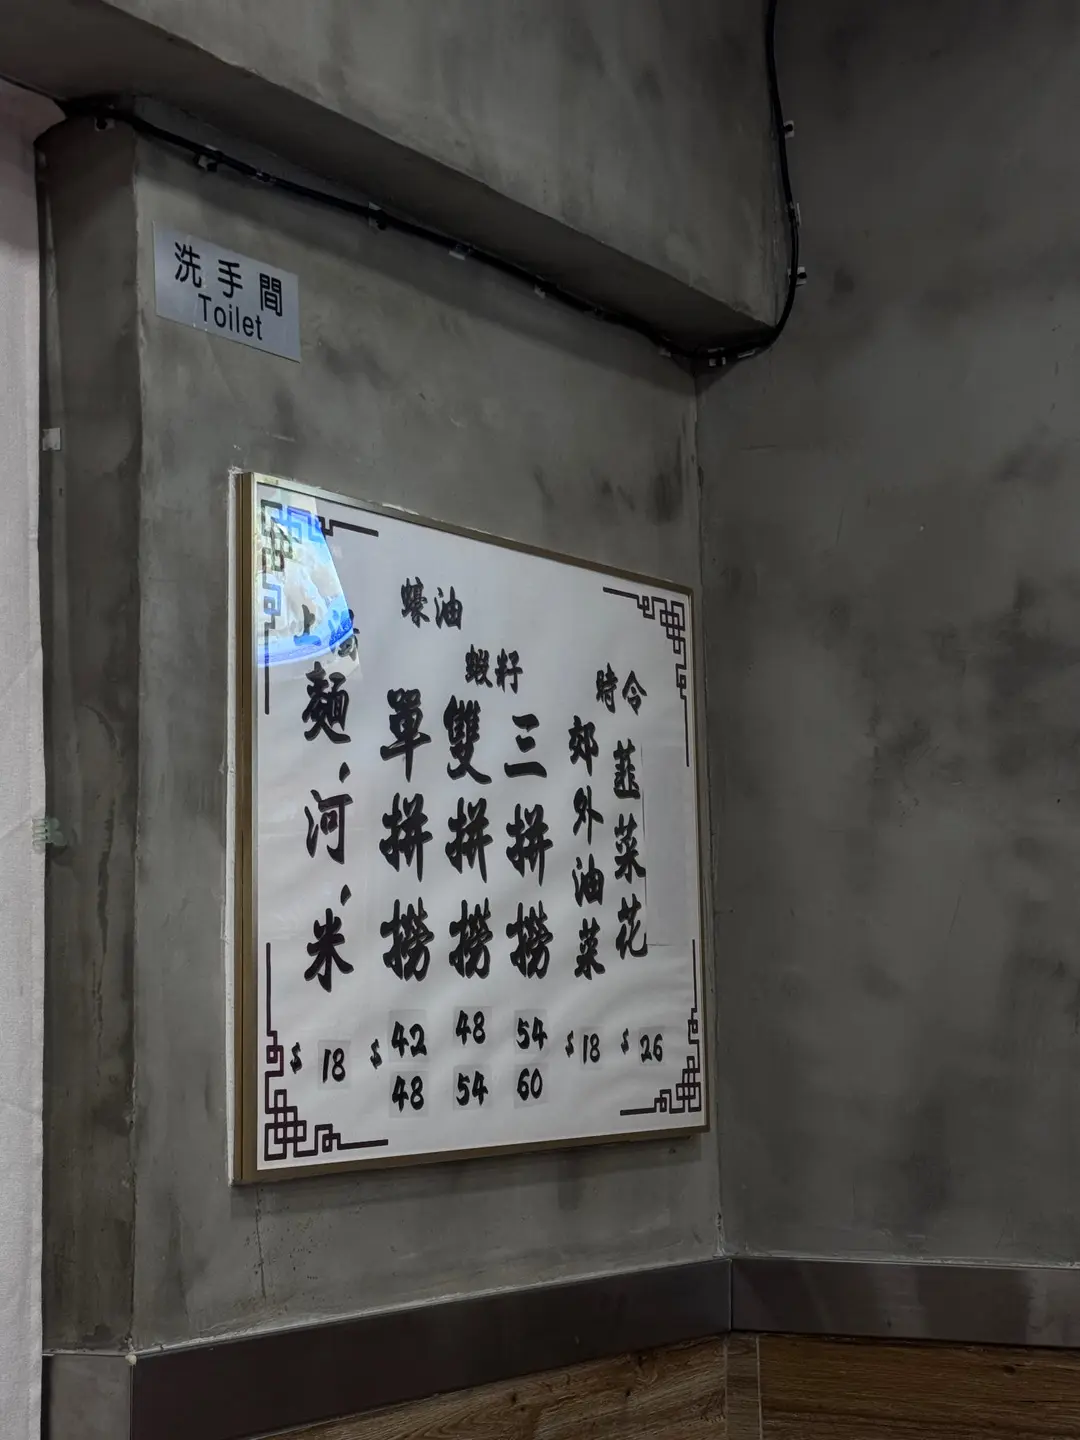 洗手間
Toilet
時令
韮菜花
$ 26
郊外油菜
$ 18
蠔油
蝦籽
三拼撈
54
60
雙拼撈
48
54
單拼撈
$ 42
48
上海
麵、河、米
$ 18